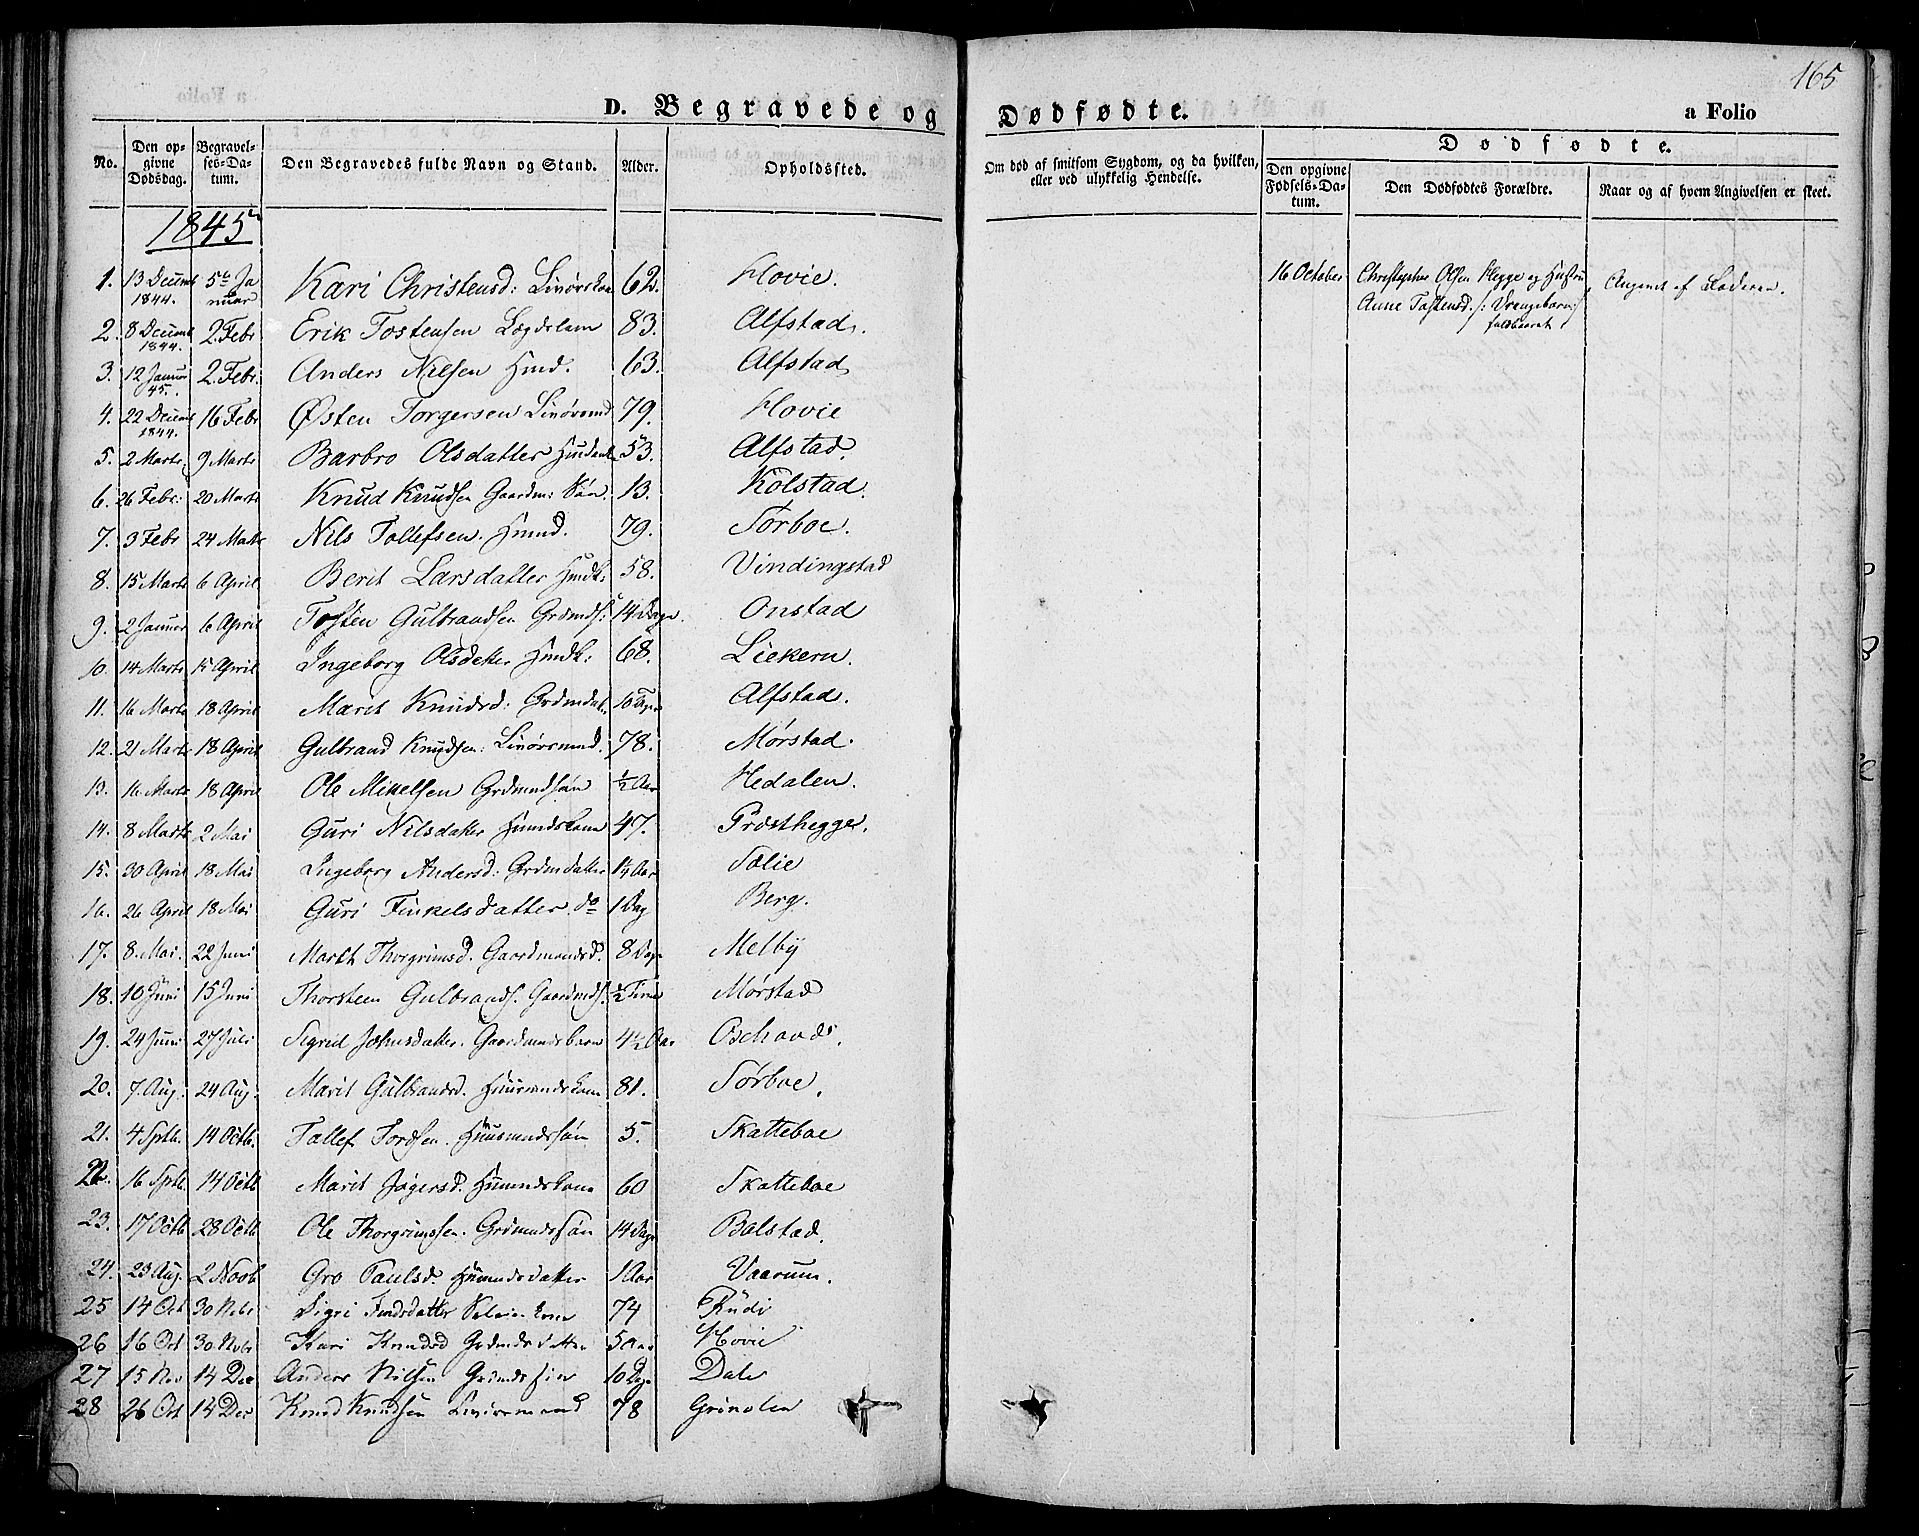 165
D. Begravede og Dødfødte.
a Folio
No.
Den opgivne Dødsdag.
Begravelses-Datum.
Den Begravedes fulde Navn og Stand.
Alder.
Opholdssted.
Om død af smitsom Sygdom, og da hvilken, eller ved ulykkelig Hendelse.
Dødfødte.
Den opgivne Fødsels-Datum.
Den Dødfødtes Forældre.
Naar og af hvem Angivelsen er skeet.
1845
1. 13 Decemb 1844. 5te Januar Kari Christensd: 62. Hovie.
2. 8 Decemb 1844. 2. Febr Erik Tostensen Lægdslem 83. Alfstad.
3. 12 Januar 45. 2. Febr. Anders Nilsen Hmd. 63. Alfstad
4. 22 Decemb 1844. 16 Febr Østen Torgersen 79. Hovie
5. 2 Marts 9 Marts Barbro Olsdatter 53. Alfstad.
6. 26 Febr: 20 Marts Knud Knudsen Gaardm: Søn. 13. Kolstad.
7. 3 Febr 24 Marts Nils Tollefsen. Hmd. 79. Sørboe.
8. 15 Marts 6 April Berit Larsdatter Hmdk: 58. Vindingstad
9. 2 Januar 6 April Tosten Gulbrandsen Grdmds: 14 Dage. Onstad
10. 14 Marts April Ingeborg Olsdatter Hmdk: 68. Liekern.
11. 16 Marts 18 April Marit Knudsd: 10 Dage Alfstad.
12. 21 Marts 18 April Gulbrand Knudsen: 78. Mørstad.
13. 16 Marts 18 April Ole Mikelsen Grdmdsøn ½ Aar Hedalen.
14. 8 Marts 2 Mai Guri Nilsdatter Hmdskone 47. Præsthegge.
15. 30 April 18 Mai Ingeborg Andersd: Grdmdatter 1¼ Aar Sælie
16. 26 April 18 Mai Guri Finkelsdatter. do 1 Dag Berg.
17. 8. Mai. 22 Juni Marit Thorgrimsd. Gaardmandsd. 8 Dage Melby
18. 10 Juni 15 Juni Thorstein Gulbrands. Gaardmds. ½ Time Mørstad
19. 24 Juni 27 Juli Sigrid Johnsdatter. Gaardmdsbarn 4½ Aar
20. 7. Aug. 24 Aug. Marit Gulbrandsd. Huusmdskone 81. Sørboe.
21. 4 Sptb. 14 Octb. Tollef Tordsen. Huusmdssøn 5. Skatteboe
22. 16 Sptb. 14 Octb Marit 60 Skatteboe
23. 17 Octb 28 Octb Ole Thorgrimssen. Grdmdssøn 14 Dage Bolstad.
24. 23 Aug. 2 Novb Gro Paulsd. Hmmdsdatter 1 Aar Vaarum.
25 14 Oct 30 Nvbr Sigri Findsdatter 74 Rudi
26 16 Oct 30 Nvbr Kari Knudsd Grdmdsdatter 5 Aar Hovie
27 15 Nov 14 Dec Anders Nilsen Grdmdssøn 10 Dge Dale
28 26 Oct 14 Dec Knud Knudsen 78
16 October Christopher Olsen Hegge og Hustru
Anne Tostensd.
Angivet af Faderen.